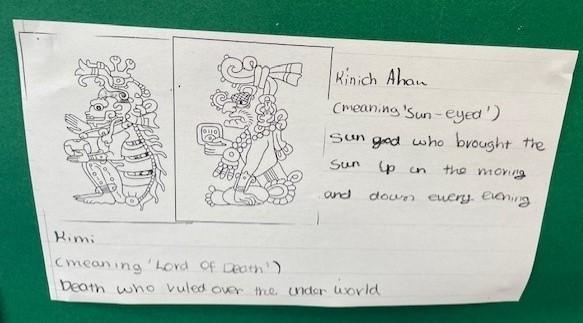 Kinich Ahau
(meaning 'Sun-eyed')
Sun god who brought the
Sun up in the moring
and down every evening
Kimi
(meaning 'Lord Of Death')
Death who ruled over the under world